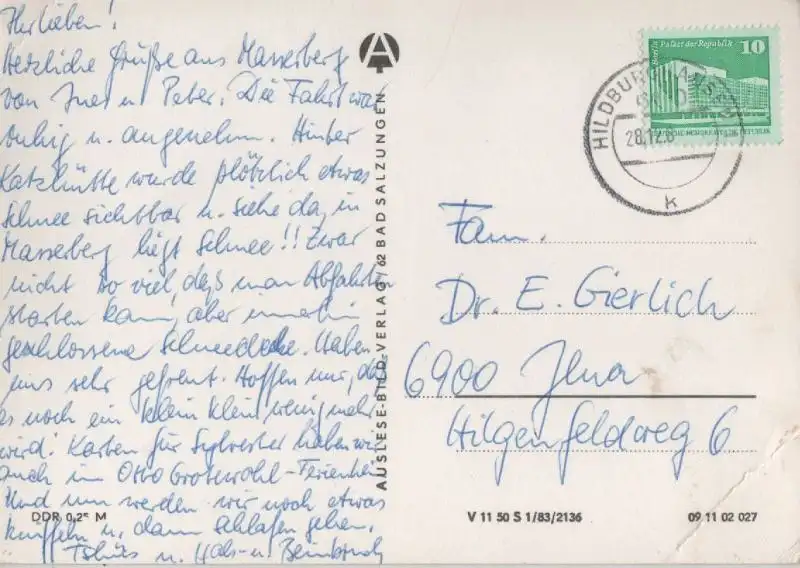 Ihr lieben!
Herzliche Grüße aus Masserberg
von Ines u. Peter. Die Fahrt war
ruhig u. angenehm. Hinter
Katzhütte wurde plötzlich etwas
Schnee sichtbar u. siehe da, in
Masserberg liegt Schnee!! Zwar
nicht so viel, daß man Abfahrten
starten kann, aber immerhin
geschlossene Schneedecke. Haben
uns sehr gefreut. Hoffen nur, daß
es noch ein klein klein wenig mehr
wird! Karten für Sylvester haben wir
auch im Otto Grotewohl-Ferienheim
Und nun werden wir noch etwas
knuffeln u. dann schlafen gehen.
Tschüs u. Hals- u. Beinbruch
DDR 0,25 M
AUSLESE-BILD-VERLAG / 62 BAD SALZUNGEN
A
Berlin Palast der Republik 10
DEUTSCHE DEMOKRATISCHE REPUBLIK
HILDBURGHAUSEN
28.12.8
k
Fam.
Dr. E. Gierlich
6900 Jena
Hilgenfeldweg 6
V 11 50 S 1/83/2136
09 11 02 027